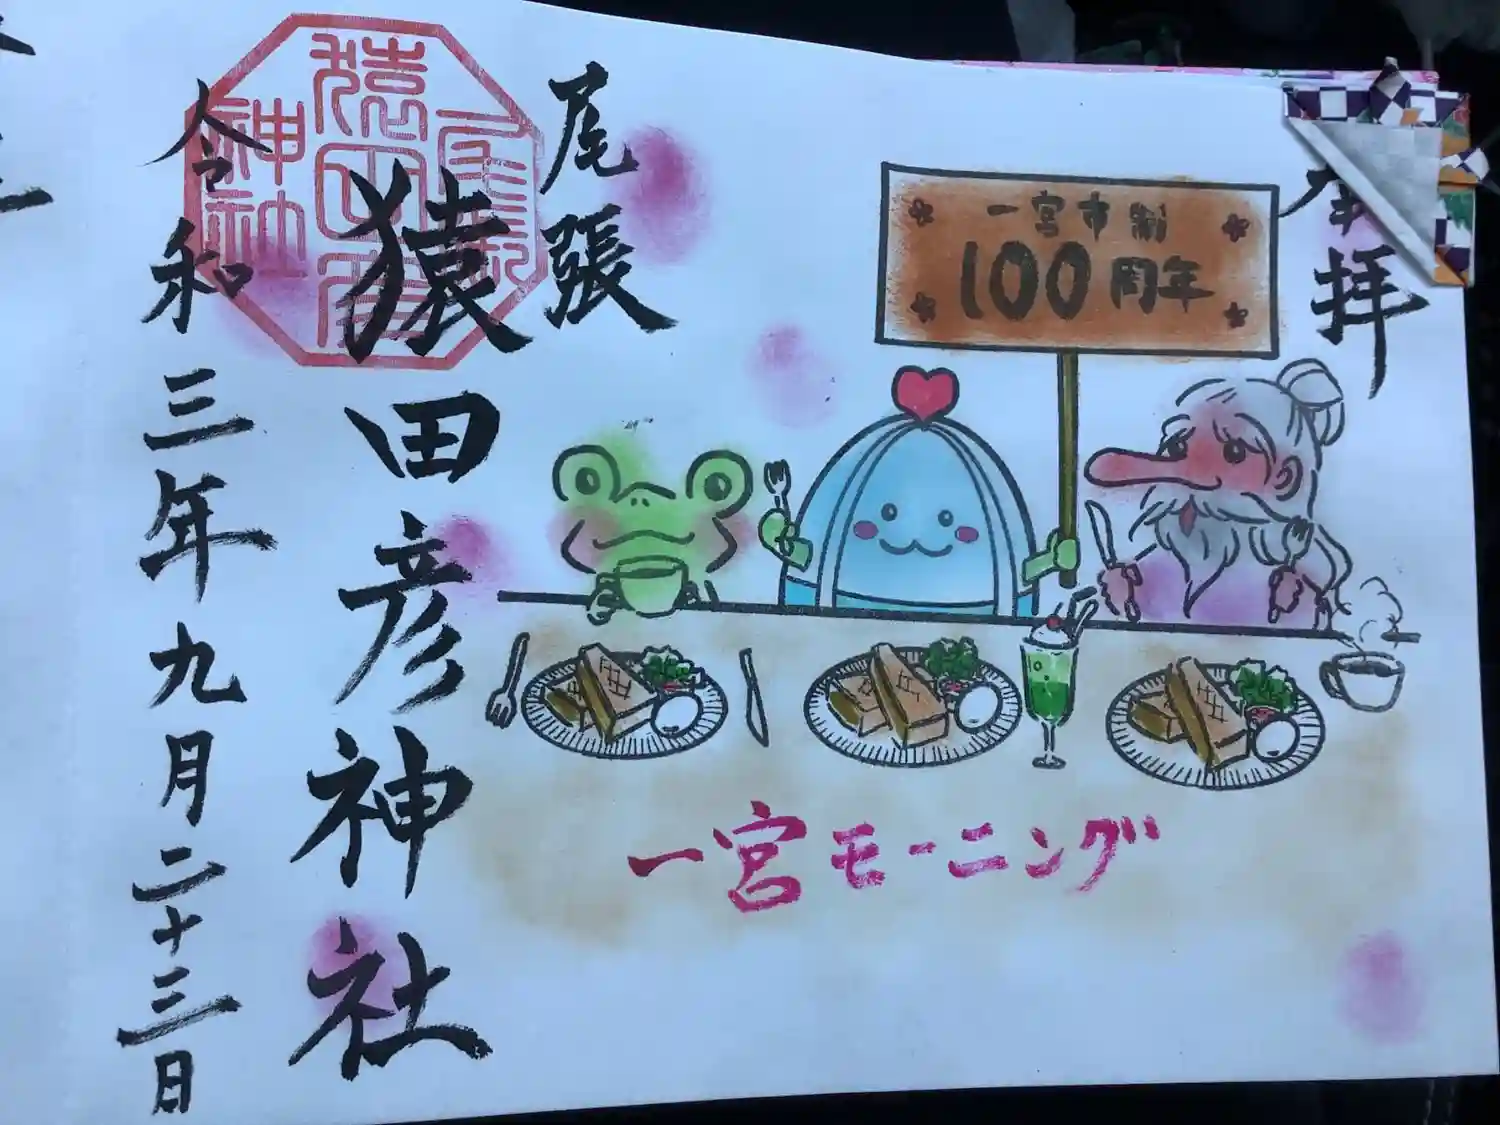 拝
一宮市制
100周年
尾張
猿田彦神社
令和三年九月二十三日
一宮モーニング